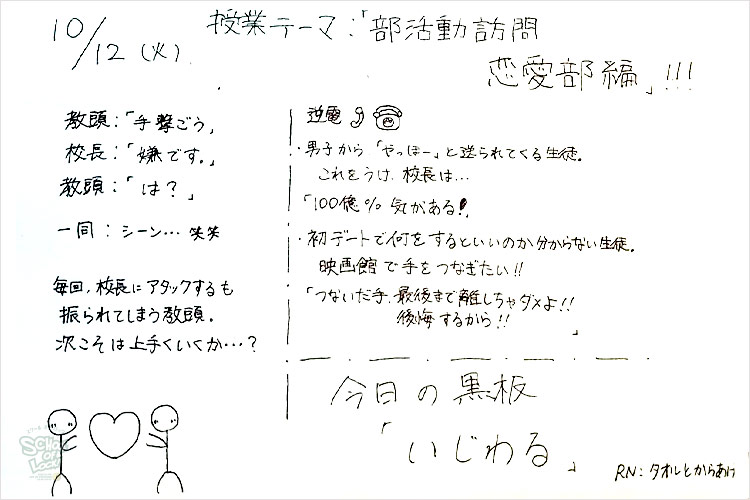 10/12（火）
授業テーマ：「部活動訪問
恋愛部編」!!!
教頭：「手繋ごう」
校長：「嫌です。」
教頭：「は？」
一同：シーン… 笑笑
毎回、校長にアタックするも
振られてしまう教頭。
次こそは上手くいくか…？
逆電
・男子から「やっほー」と送られてくる生徒。
これをうけ、校長は…
「100億％気がある!」
・初デートで何をするといいのか分からない生徒。
映画館で手をつなぎたい!!
「つないだ手、最後まで離しちゃダメよ!!
後悔するから!!
」
今日の黒板
「いじわる」
RN：タオルとからあげ
SCHOOL OF LOCK!